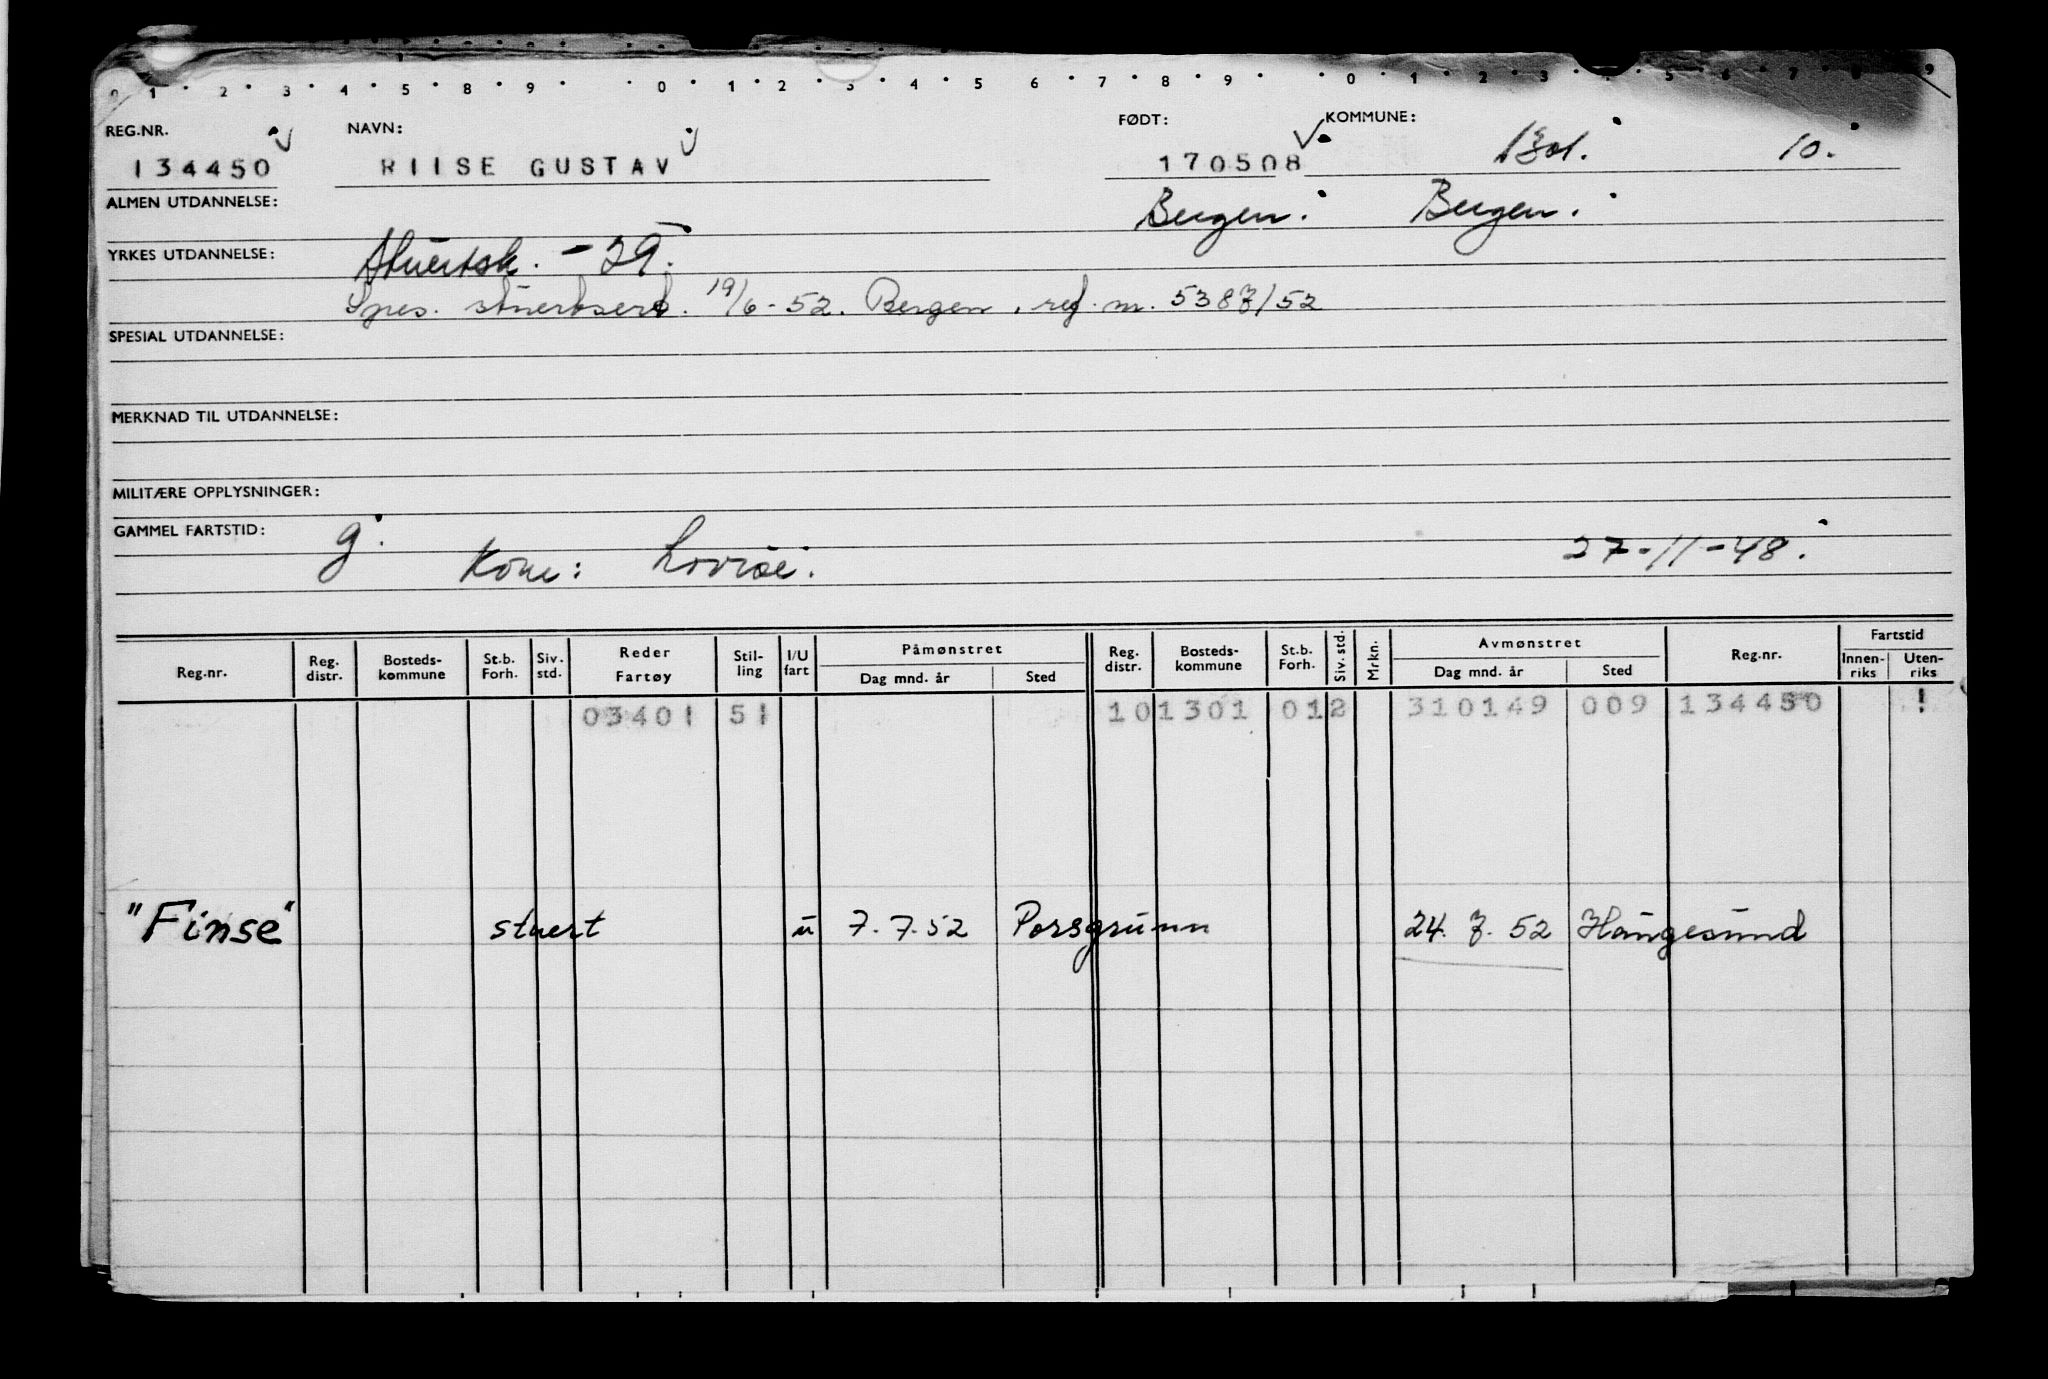 0 1 2 3 4 5 6 8 9 0 1 2 3 4 5 6 7 8 9 0 1 2 3 5 6 7 8 9
REG.NR. NAVN: FØDT: KOMMUNE:
134450 RIISE GUSTAV 170508 1301. 10.
ALMEN UTDANNELSE: Bergen. Bergen.
YRKES UTDANNELSE: Stuertsk. - 29.
Spes. stuertsert. 19/6-52. Bergen, ref. nr. 5387/52
SPESIAL UTDANNELSE:
MERKNAD TIL UTDANNELSE:
MILITÆRE OPPLYSNINGER:
GAMMEL FARTSTID: g.
Kone: Lovise. 27-11-48.
Reg.nr. Reg. distr. Bosteds-kommune St.b. Forh. Siv. std. Reder Fartøy Stil-ling I/U fart Påmønstret Dag mnd. år Sted Reg. distr. Bosteds-kommune St.b. Forh. Siv. std. Mrkn. Avmønstret Dag mnd. år Sted Reg.nr. Fartstid Innen-riks Uten-riks
03401 51 101301 012 310149 009 134450 1
"Finse" stuert u 7.7.52 Porsgrunn 24.7.52 Haugesund